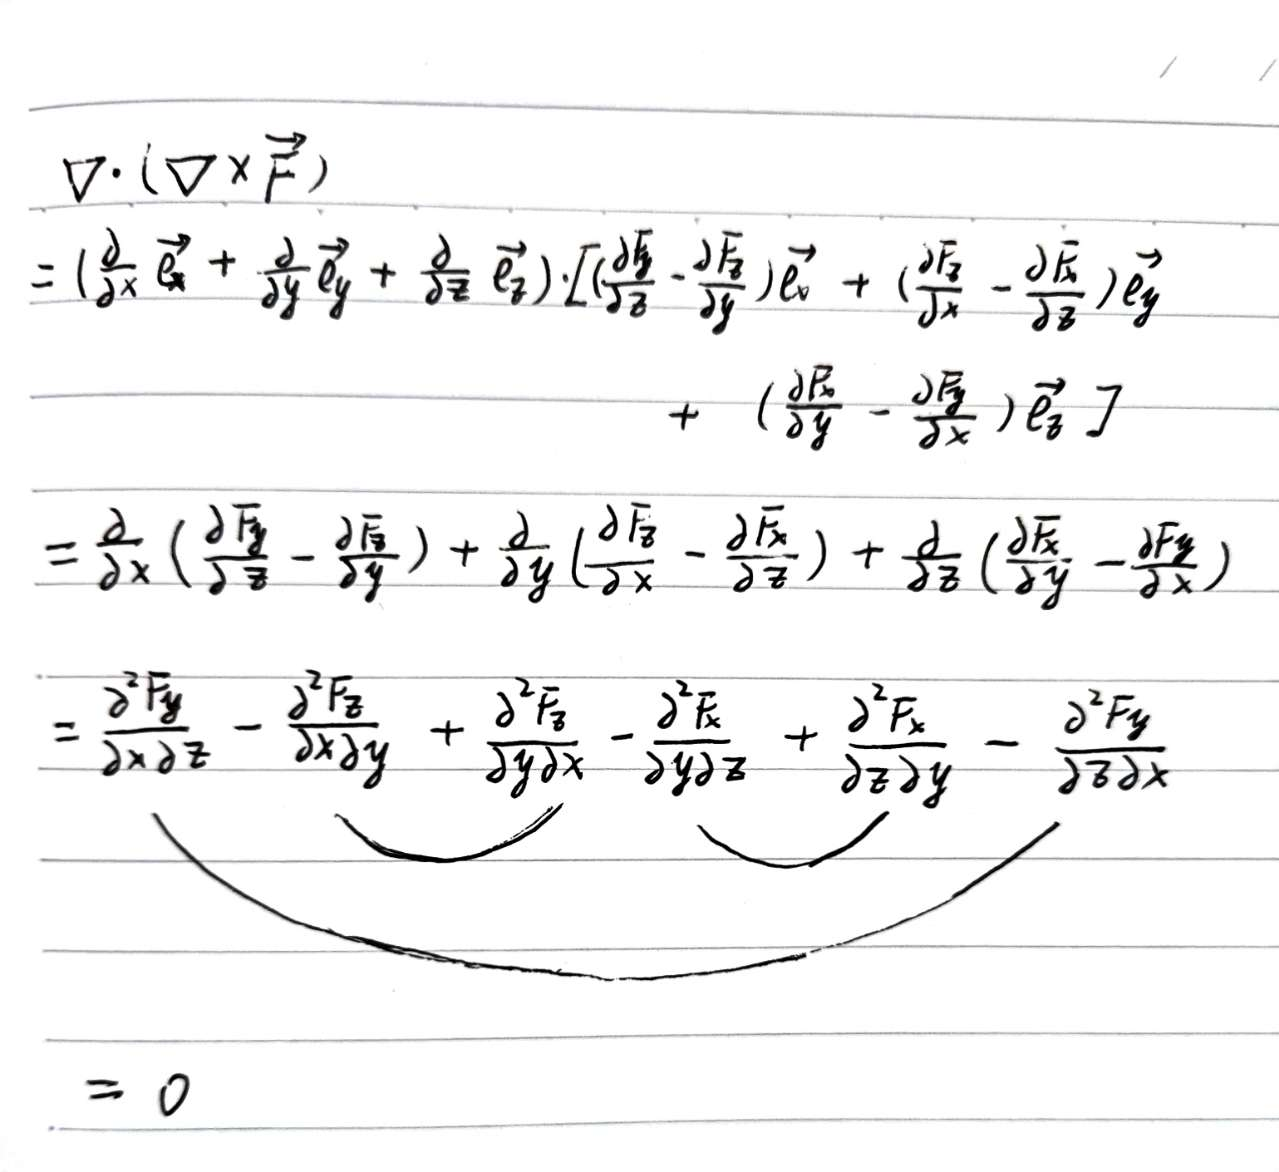 ∇·(∇×F⃗)
= (∂/∂x e⃗x + ∂/∂y e⃗y + ∂/∂z e⃗z)·[(∂Fy/∂z - ∂Fz/∂y)e⃗x + (∂Fz/∂x - ∂Fx/∂z)e⃗y
+ (∂Fx/∂y - ∂Fy/∂x)e⃗z]
= ∂/∂x(∂Fy/∂z - ∂Fz/∂y) + ∂/∂y(∂Fz/∂x - ∂Fx/∂z) + ∂/∂z(∂Fx/∂y - ∂Fy/∂x)
= ∂²Fy/∂x∂z - ∂²Fz/∂x∂y + ∂²Fz/∂y∂x - ∂²Fx/∂y∂z + ∂²Fx/∂z∂y - ∂²Fy/∂z∂x
= 0